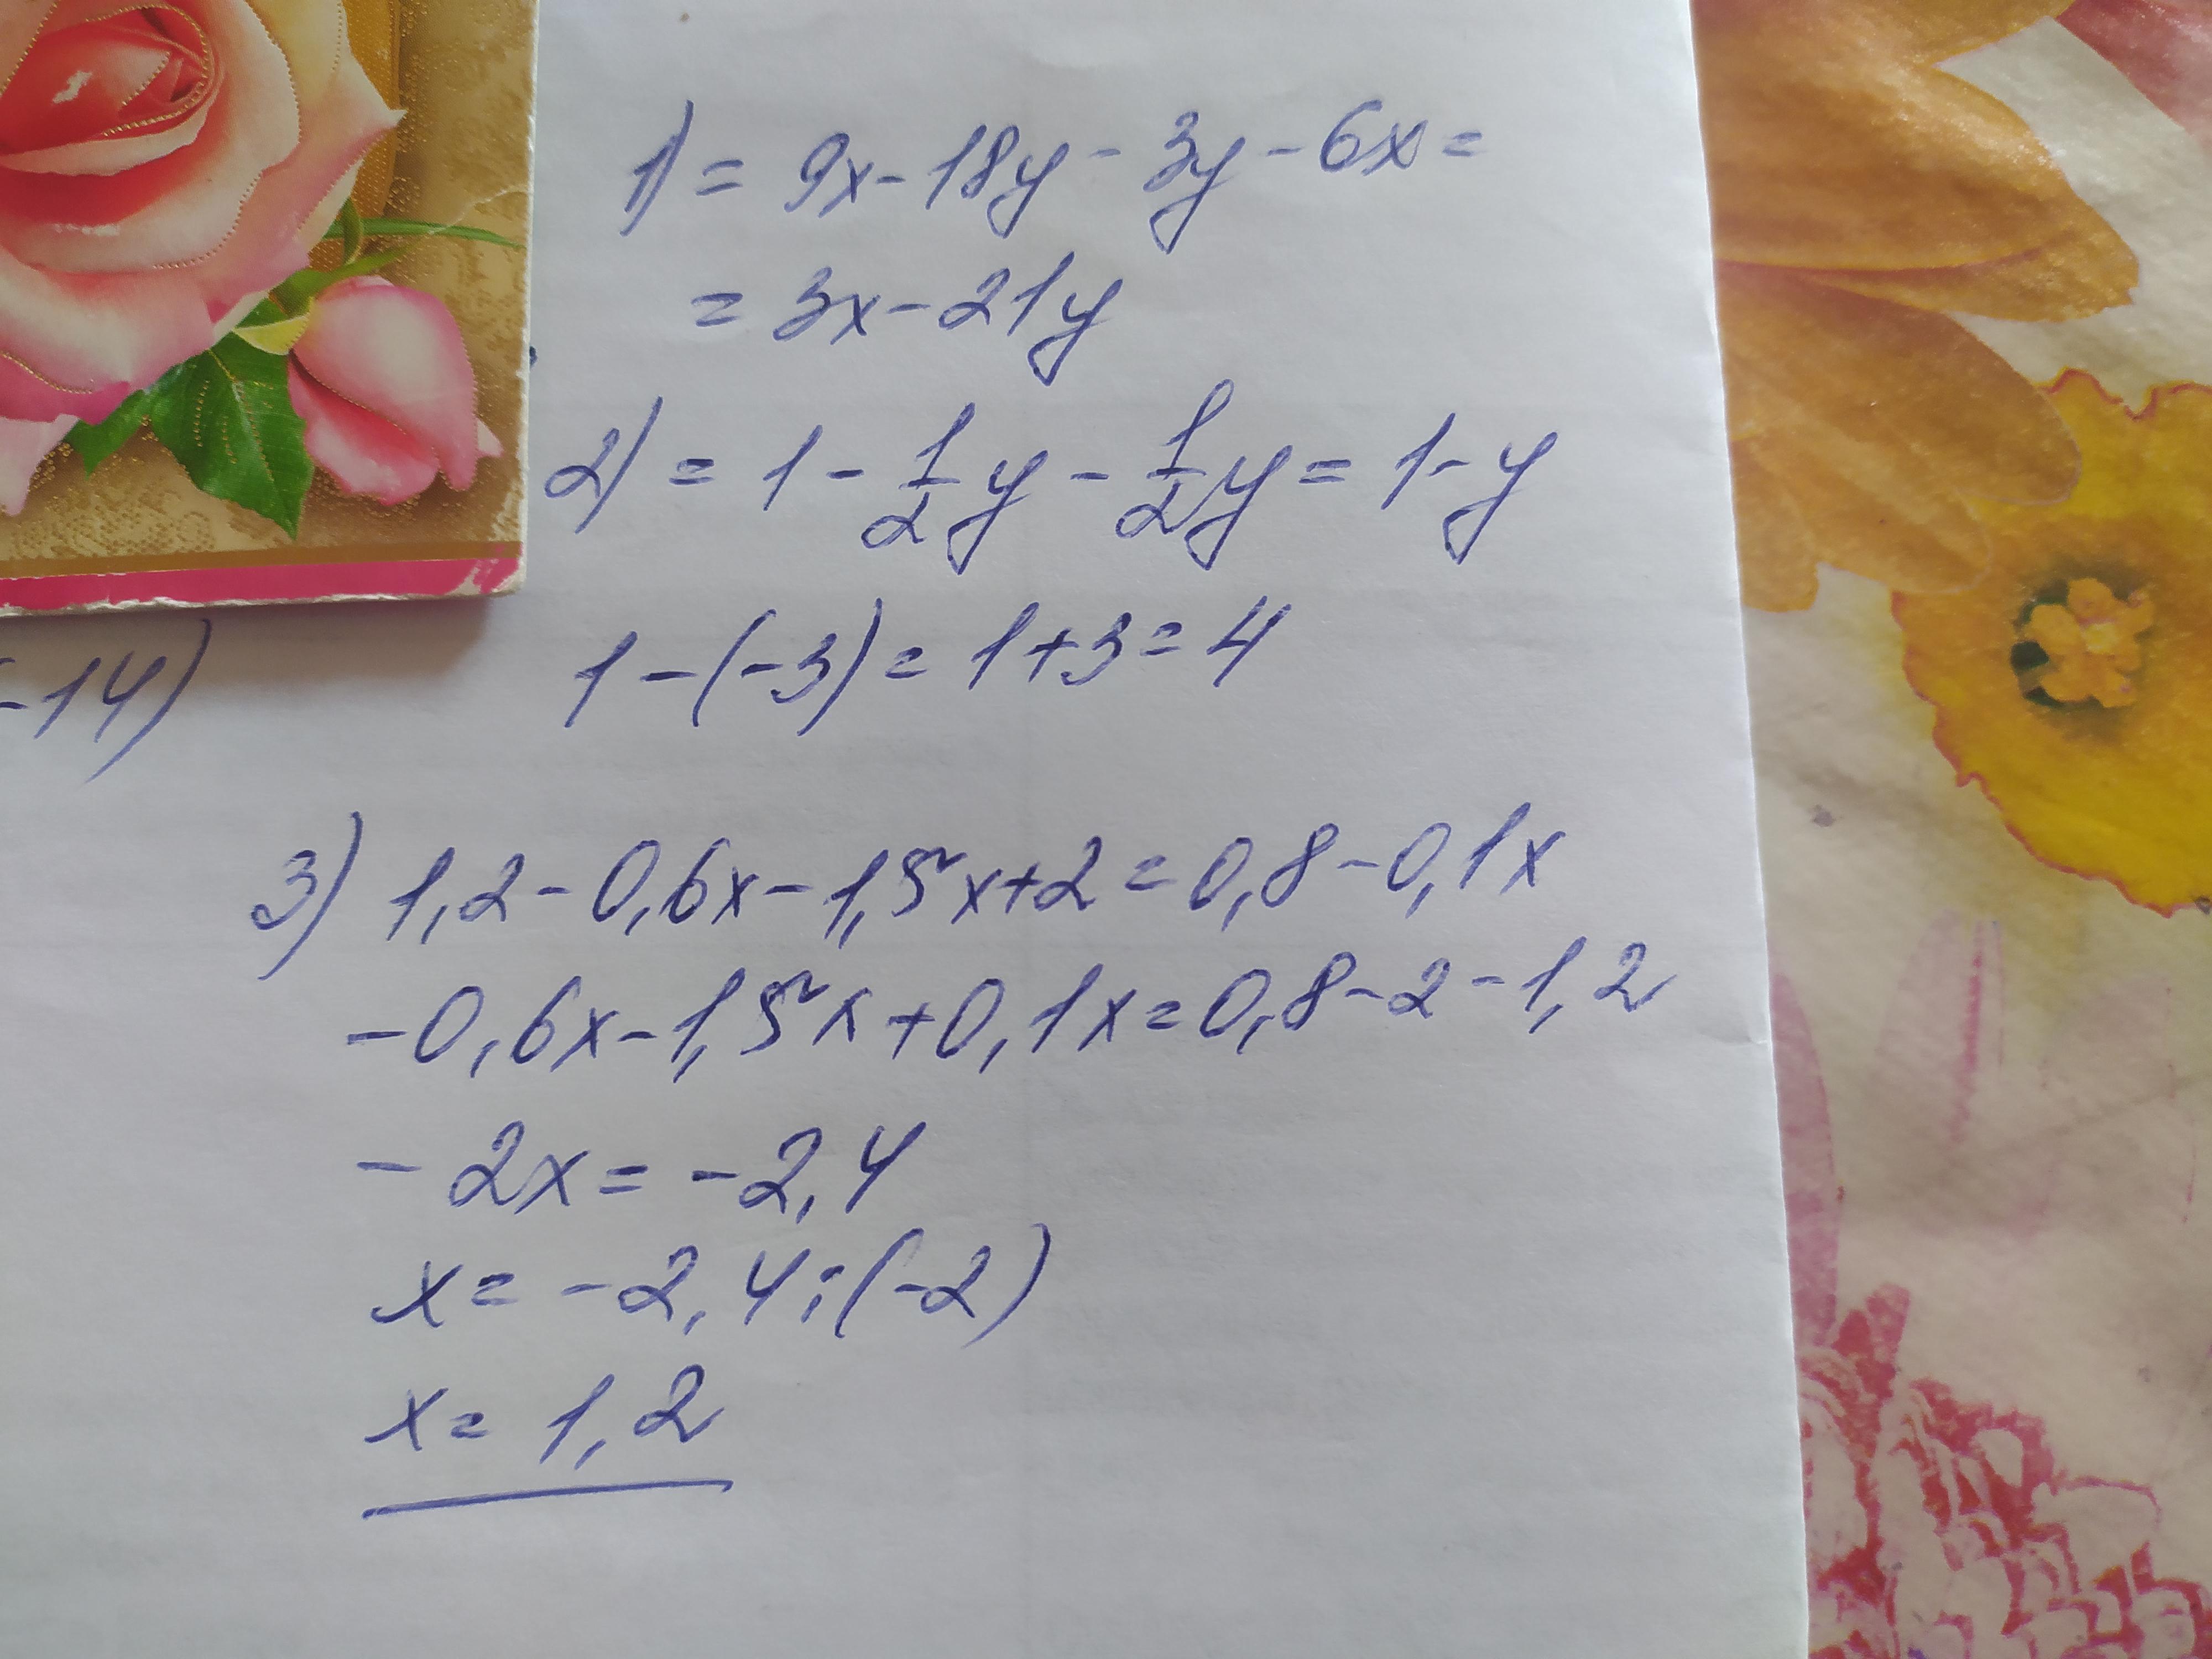 1) = 9x - 18y - 3y - 6x =
= 3x - 21y
2) = 1 - 1/2 y - 1/2 y = 1 - y
1 - (-3) = 1 + 3 = 4
-14)
3) 1,2 - 0,6x - 1,5x + 2 = 0,8 - 0,1x
-0,6x - 1,5x + 0,1x = 0,8 - 2 - 1,2
- 2x = -2,4
x = -2,4 : (-2)
x = 1,2